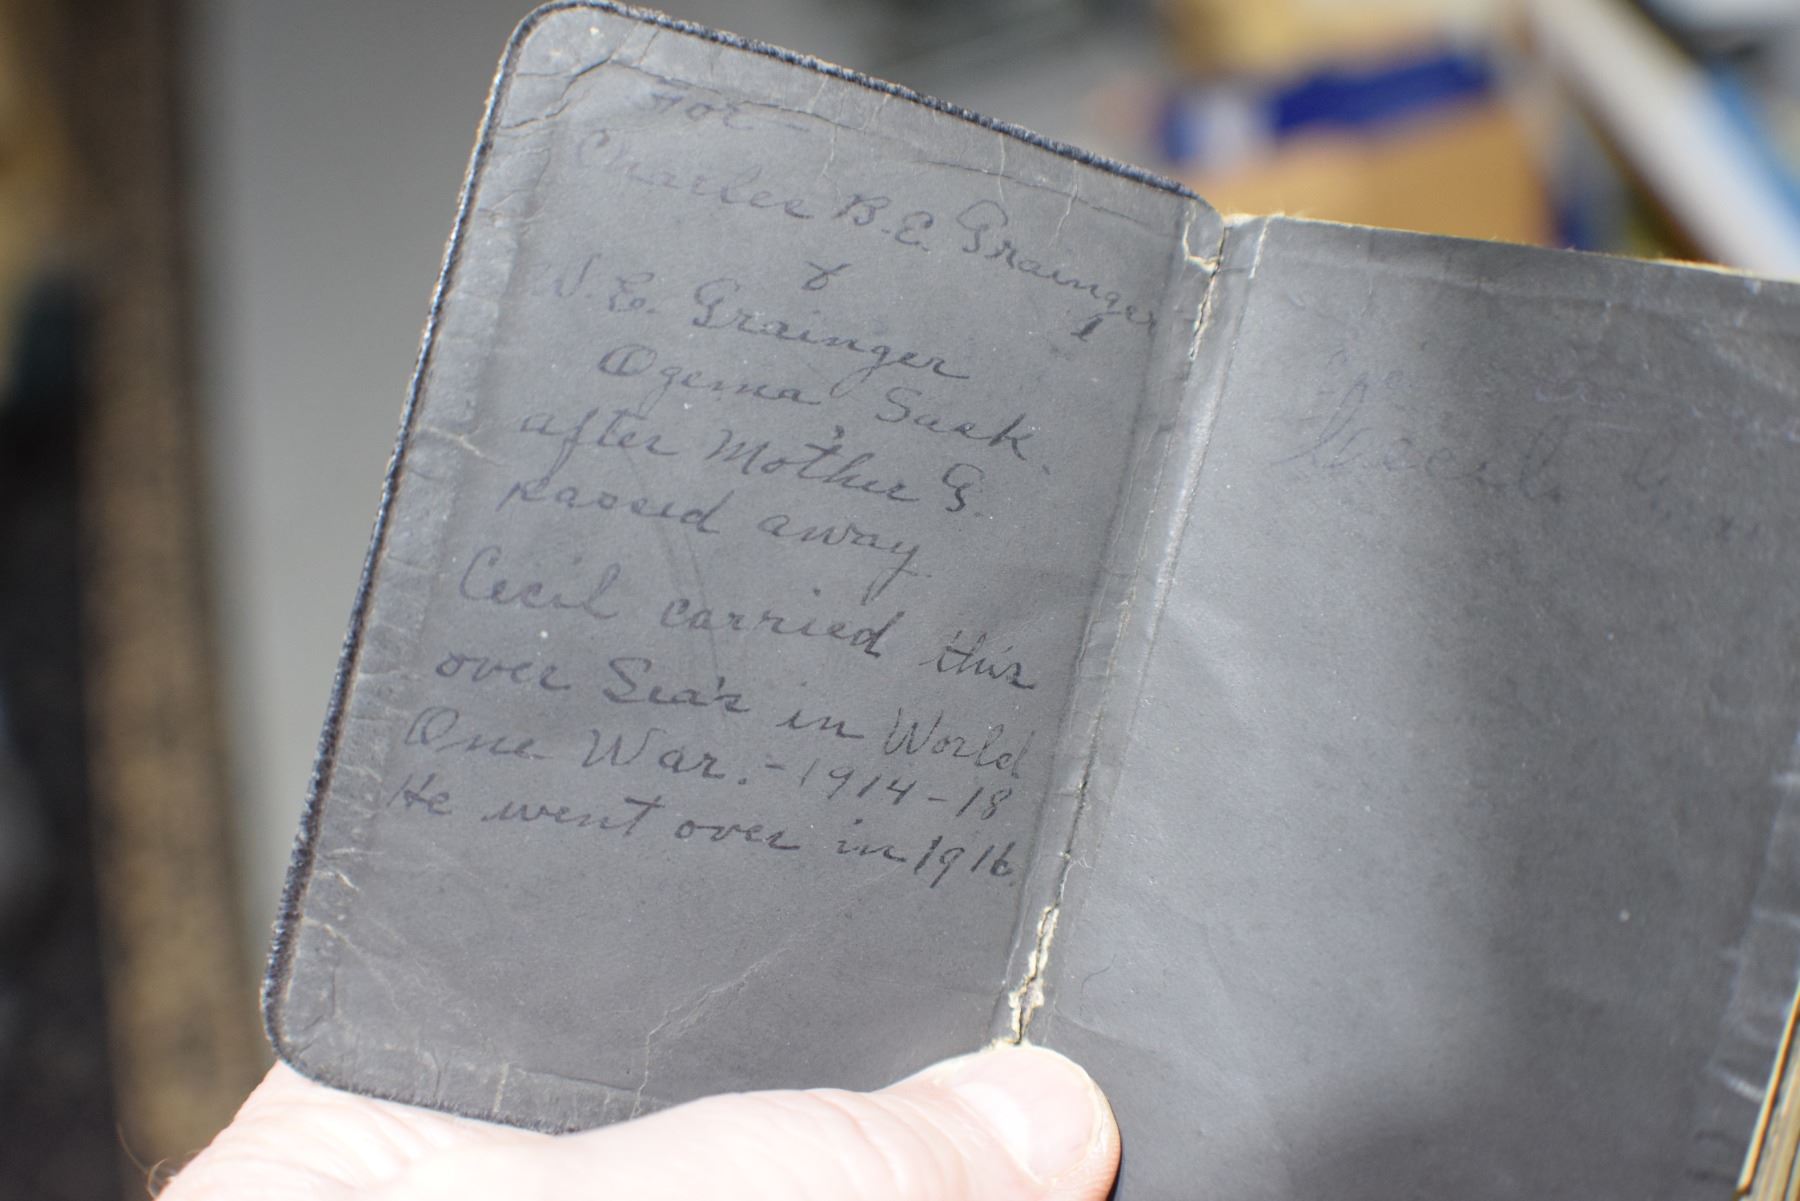 For -
Charles B.E. Grainger
&
W.E. Grainger
Ogema Sask.
after Mother G.
passed away
Cecil carried this
over Sea's in World
One War. - 1914-18
He went over in 1916.
Cecil